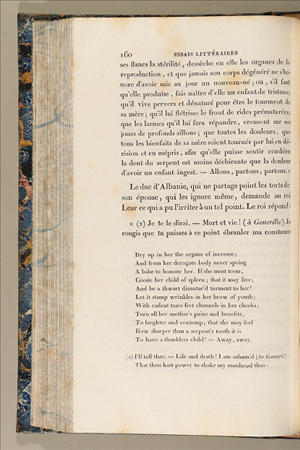 160 ESSAIS LITTÉRAIRES
ses flancs la stérilité, dessèche en elle les organes de la
reproduction, et que jamais son corps dégénéré ne s'ho-
nore d'avoir mis au jour un nouveau-né; ou, s'il faut
qu'elle produise, fais naître d'elle un enfant de tristesse;
qu'il vive pervers et dénaturé pour être le tourment de
sa mère; qu'il lui flétrisse le front de rides prématurées;
que les larmes qu'il lui fera répandre, creusent sur ses
joues de profonds sillons; que toutes les douleurs, que
tous les bienfaits de sa mère soient tournés par lui en dé-
rision et en mépris, afin qu'elle puisse sentir combien
la dent du serpent est moins déchirante que la douleur
d'avoir un enfant ingrat. — Allons, partons, partons. »
Le duc d'Albanie, qui ne partage point les torts de
son épouse, qui les ignore même, demande au roi
Lear ce qui a pu l'irriter à un tel point. Le roi répond:
« (2) Je te le dirai. — Mort et vie! (à Gonerille) Je
rougis que tu puisses à ce point ébranler ma constance
Dry up in her the organs of increase;
And from her derogate body never spring
A babe to honour her. If she must teem,
Create her child of spleen; that it may live,
And be a thwart disnatur'd torment to her!
Let it stamp wrinkles in her brow of youth;
With cadent tears fret channels in her cheeks;
Turn all her mother's pains and benefits,
To laughter and contemp; that she may feel
How sharper than a serpent's tooth it is
To have a thankless child! — Away, away.
(2) I'll tell thee. — Life and death! I am asham'd (to Goneril)
That thou hast power to shake my manhood thus: